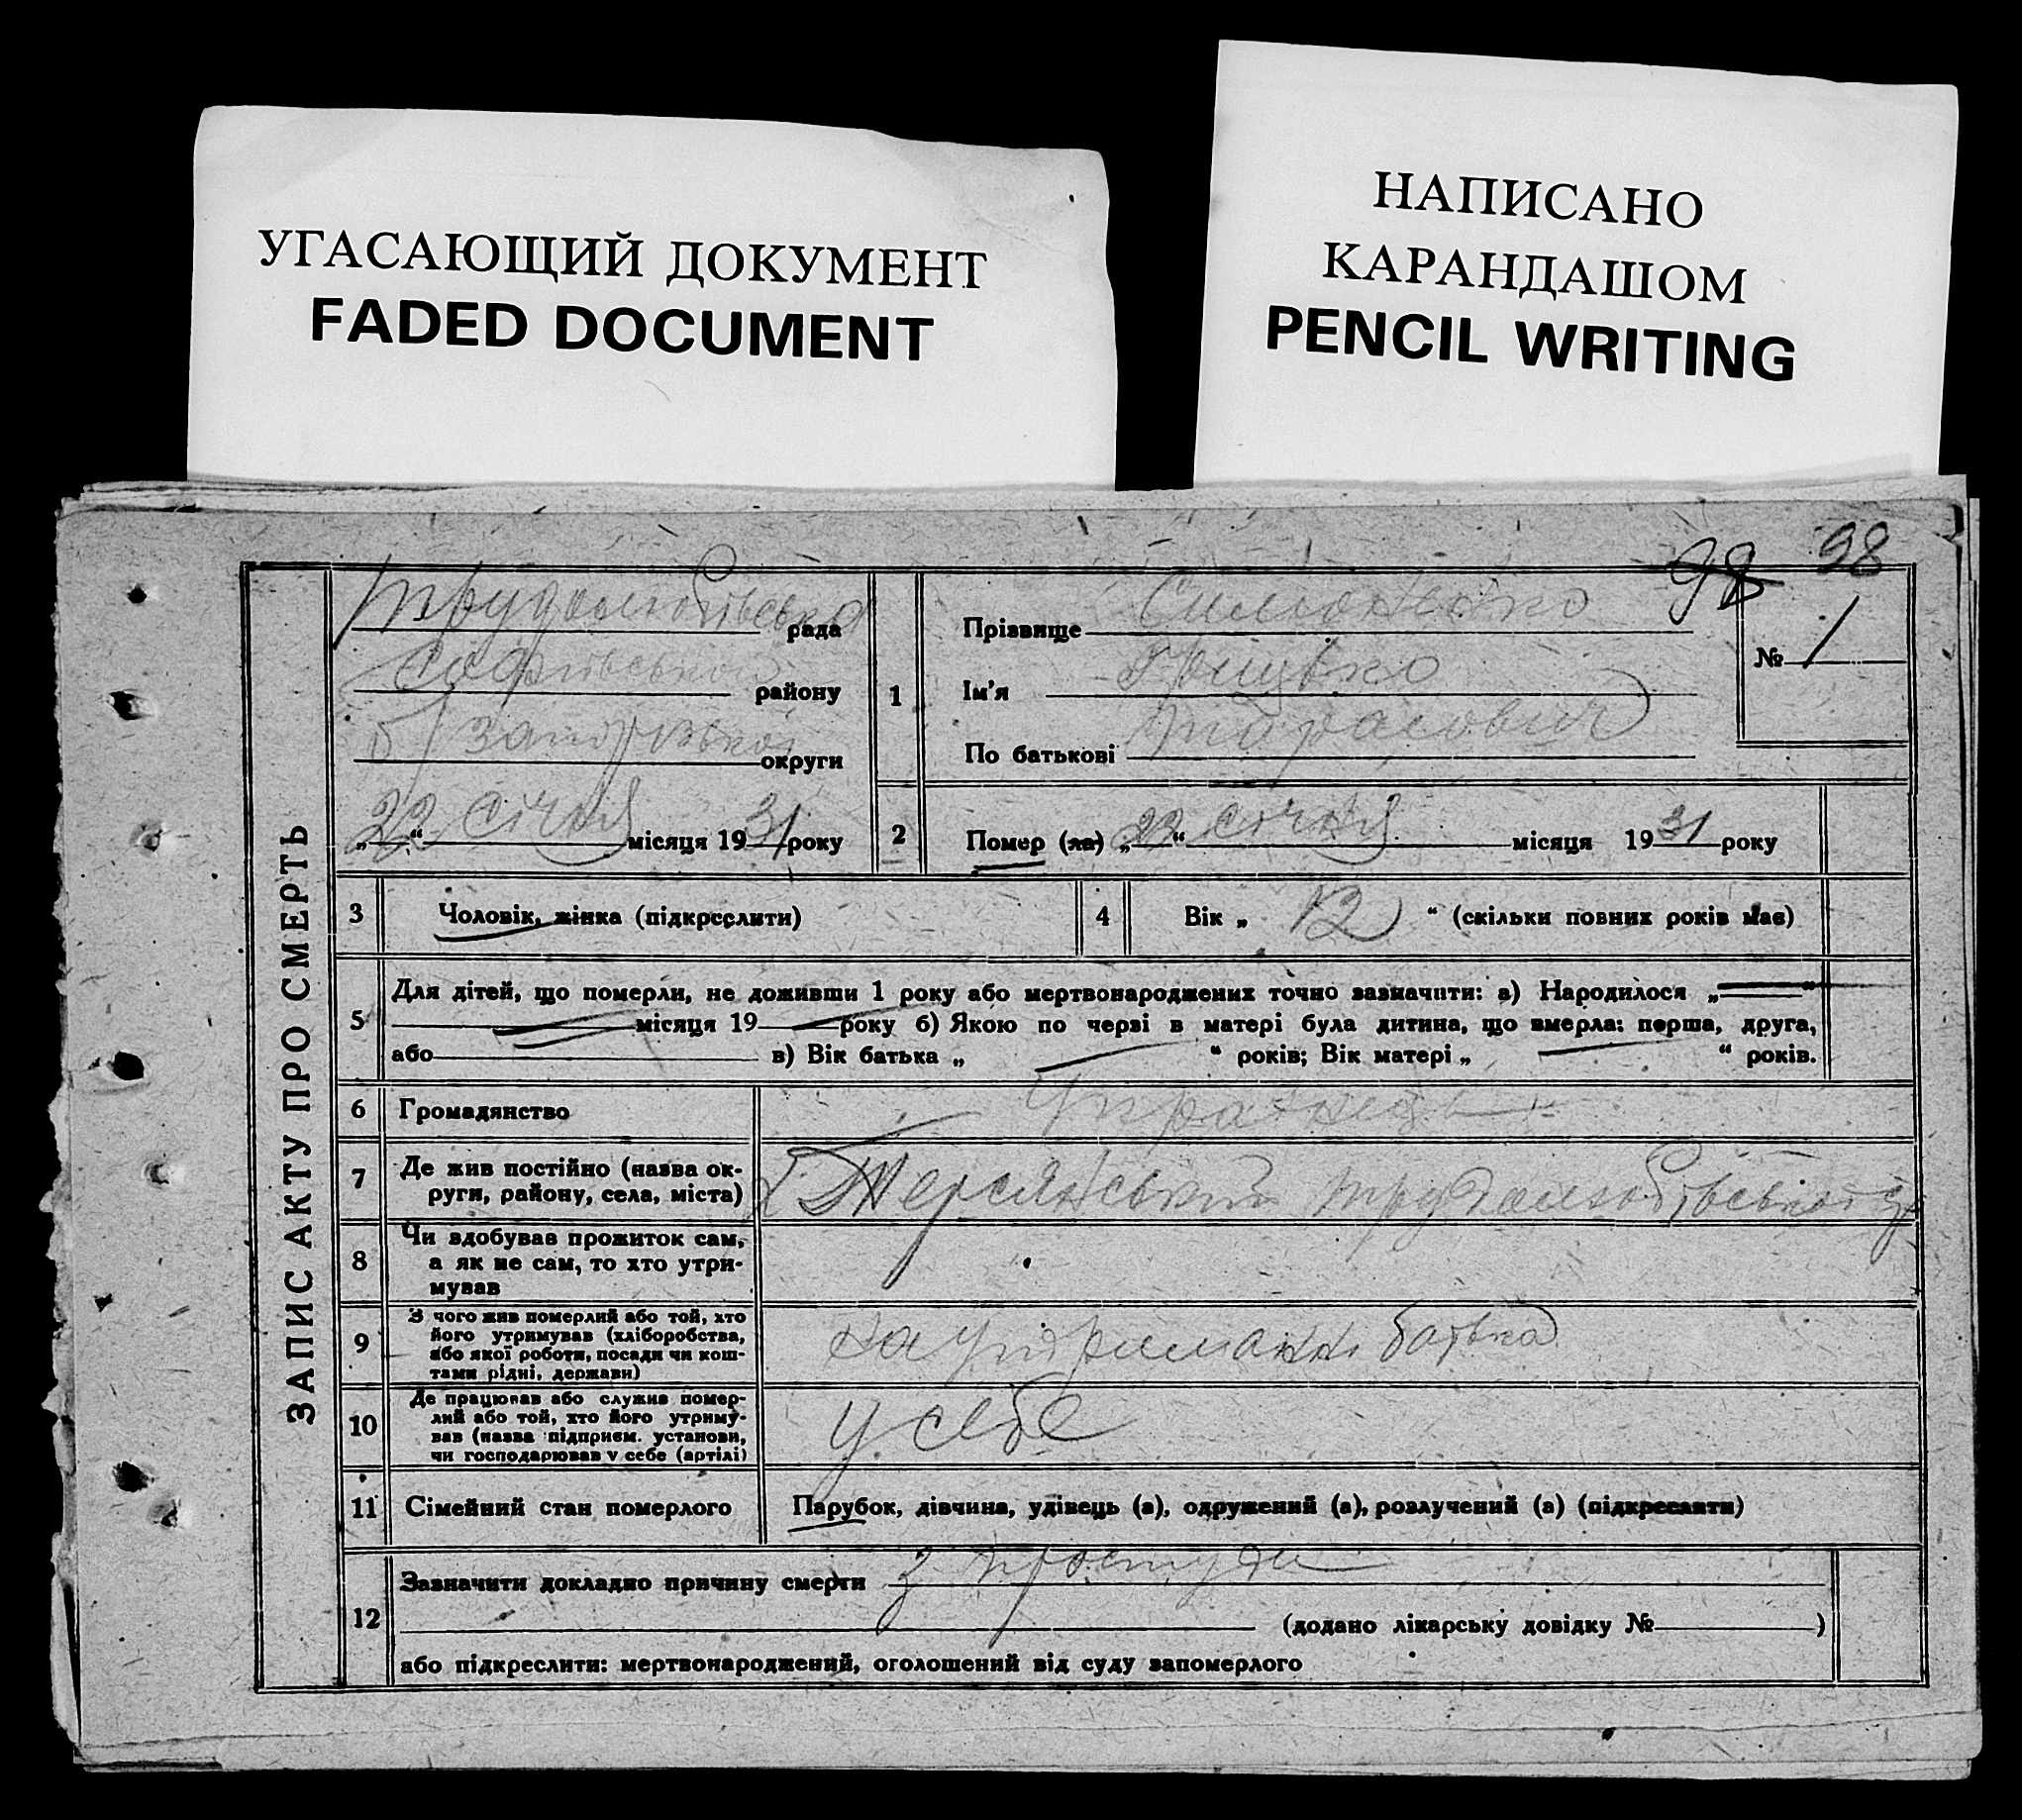 УГАСАЮЩИЙ ДОКУМЕНТ
FADED DOCUMENT
НАПИСАНО
КАРАНДАШОМ
PENCIL WRITING
98 98
ЗАПИС АКТУ ПРО СМЕРТЬ
Трудолюбівська рада
Софіївської району
б/Запорізької округи
„22“ січня місяця 1931 року
1
Прізвище Симоненко
Ім'я Грицько
По батькові Тарасович
№ 1
2 Помер (ла) „22“ січня місяця 1931 року
3 Чоловік, жінка (підкреслити)
4 Вік „ 12 “ (скільки повних років має)
5 Для дітей, що померли, не доживши 1 року або мертвонароджених точно зазначити: а) Народилося „—“
місяця 19 року б) Якою по черзі в матері була дитина, що вмерла: перша, друга,
або в) Вік батька „ “ років; Вік матері „ “ років.
6 Громадянство Українець
7 Де жив постійно (назва ок-
руги, району, села, міста)
Терсянський Трудолюбівської
8 Чи вдобував прожиток сам,
а як не сам, то хто утри-
мував
9 З чого жив померлий або той, хто
його утримував (хліборобства,
або якої роботи, посади чи кош-
тами рідні, держави)
на утриманні батька
10 Де працював або служив помер-
лий або той, хто його утриму-
вав (назва підприєм. установи,
чи господарював у себе (артілі)
у себе
11 Сімейний стан померлого Парубок, дівчина, удівець (а), одружений (а), розлучений (а) (підкреслити)
12 Зазначити докладно причину смерти з простуди
(додано лікарську довідку № )
або підкреслити: мертвонароджений, оголошений від суду запомерлого